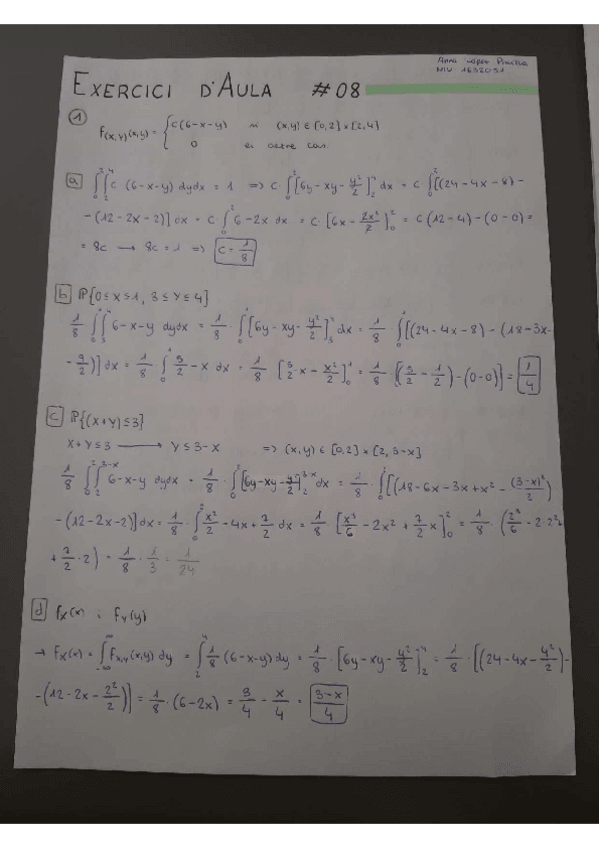 Anna López
NIU 1632051
EXERCICI D'AULA #08
① f(X,Y)(x,y) = { c(6-x-y) si (x,y) ∈ [0,2]×[2,4]
0 en altre cas.
a ∫₀² ∫₂⁴ c (6-x-y) dydx = 1 ⇒ c ∫₀² [6y-xy-y²/2]₂⁴ dx = c ∫₀² [(24-4x-8)-
-(12-2x-2)] dx = c ∫₀² 6-2x dx = c·[6x-2x²/2]₀² = c(12-4)-(0-0) =
= 8c → 8c=1 ⇒ c=1/8
b P{0≤X≤1, 3≤Y≤4}
1/8 ∫₀¹ ∫₃⁴ 6-x-y dydx = 1/8 · ∫₀¹ [6y-xy-y²/2]₃⁴ dx = 1/8 · ∫₀¹ [(24-4x-8)-(18-3x-
-9/2)] dx = 1/8 · ∫₀¹ 5/2-x dx = 1/8 · [5/2·x-x²/2]₀¹ = 1/8 · [(5/2-1/2)-(0-0)] = 1/4
c P{(X+Y)≤3}
X+Y≤3 → Y≤3-X ⇒ (x,y) ∈ [0,2]×[2,3-x]
1/8 ∫₀² ∫₂³⁻ˣ 6-x-y dydx = 1/8 · ∫₀² [6y-xy-y²/2]₂³⁻ˣ dx = 1/8 · ∫₀² [(18-6x-3x+x²-(3-x)²/2)
-(12-2x-2)] dx = 1/8 · ∫₀² x²/2-4x+7/2 dx = 1/8 · [x³/6-2x²+7/2x]₀² = 1/8 · (2³/6-2·2²+
+7/2·2) = 1/8 · 1/3 = 1/24
d fX(x) i fY(y)
→ fX(x) = ∫₋∞^∞ fX,Y(x,y) dy = ∫₂⁴ 1/8 (6-x-y) dy = 1/8 · [6y-xy-y²/2]₂⁴ = 1/8 · [(24-4x-4²/2)-
-(12-2x-2²/2)] = 1/8 · (6-2x) = 3/4 - x/4 = 3-x/4